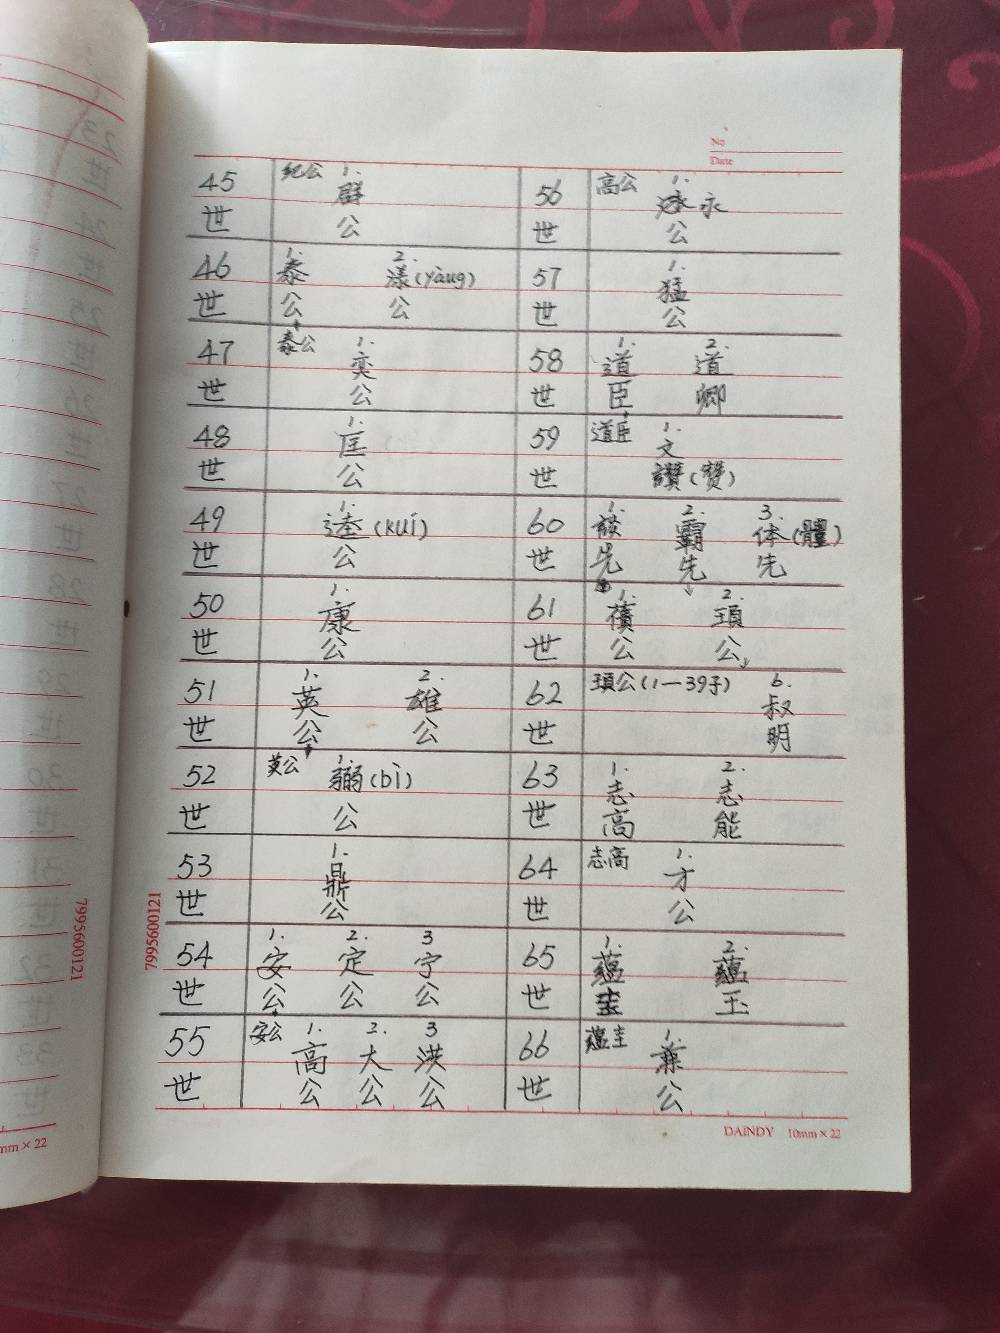 No
Date
45世 纪公 1. 群公
46世 1. 泰公 2. 漾(yàng)公
47世 泰公 1. 奕公
48世 1. 匡公
49世 1. 逵(kuí)公
50世 1. 康公
51世 1. 英公 2. 雄公
52世 英公 1. (bì)公
53世 1. 鼎公
54世 1. 安公 2. 定公 3 宁公
55世 安公 1. 高公 2. 大公 3 洪公
56世 高公 1. 永公
57世 1. 猛公
58世 1. 道臣 2. 道卿
59世 道臣 1. 文讚(赞)
60世 1. 先 2. 霸先 3. 体(體)先
61世 1. 公 2. 頊公
62世 頊公(1—39子) 6. 叔明
63世 1. 志高 2. 志能
64世 志高 1. 才公
65世 1. 蕴圭 2. 蕴玉
66世 蕴圭 1. 兼公
7995600121
7995600121
DAINDY 10mm×22
mm×22